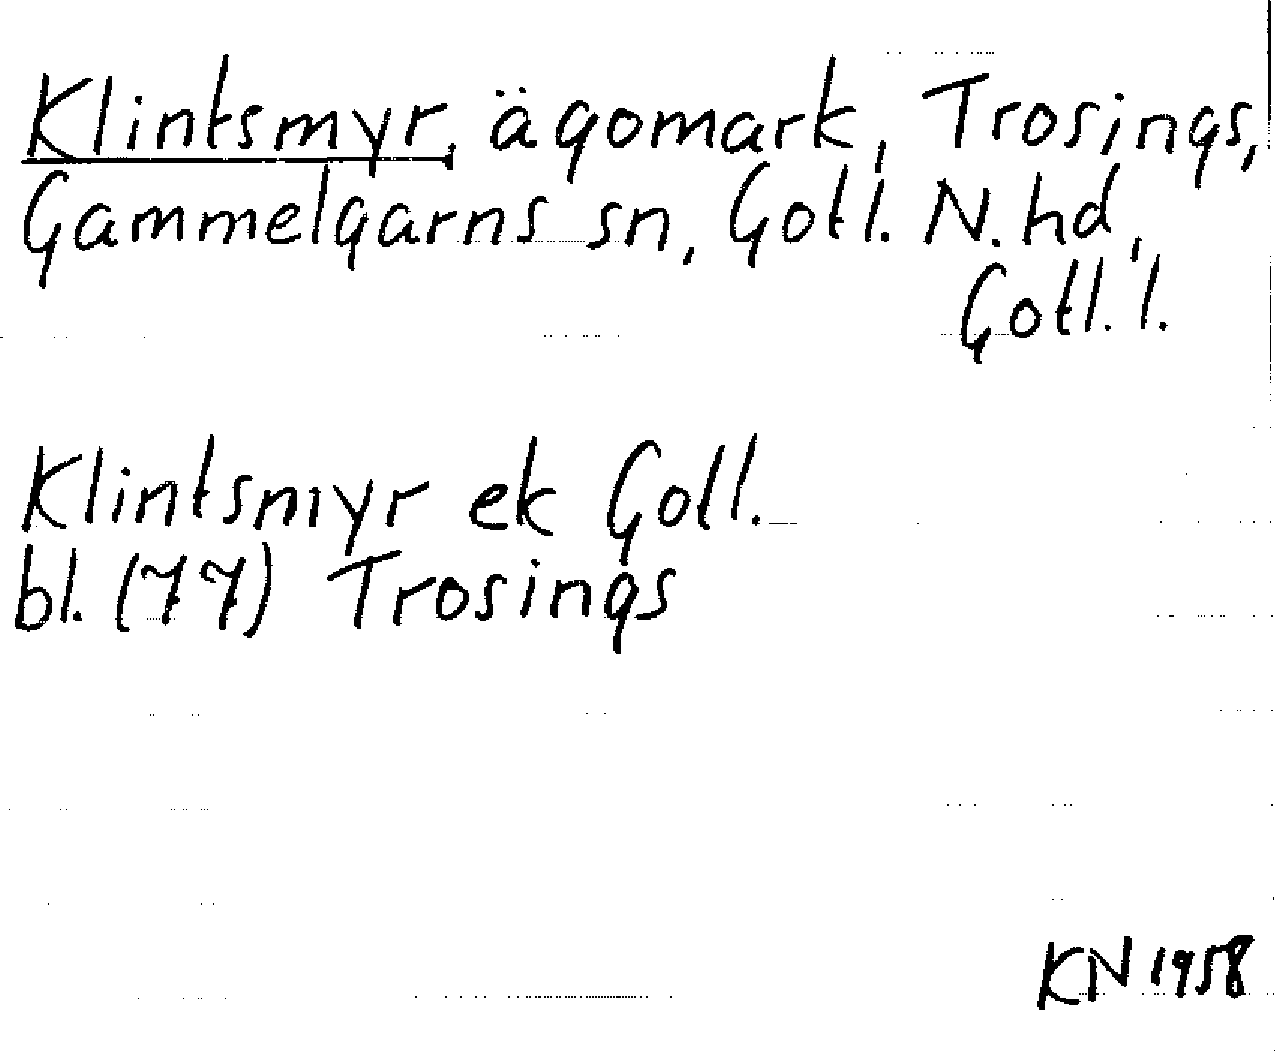 Klintsmyr, ägomark, Trosings,
Gammelgarns sn, Gotl. N. hd,
Gotl. l.
Klintsmyr ek Gotl.
bl. (77) Trosings
KN 1958